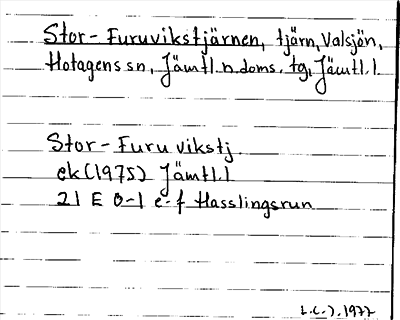 Stor-Furuvikstjärnen, tjärn, Valsjön,
Hotagens sn, Jämtl. n. doms. tg, Jämtl. l
Stor-Furuvikstj
ek (1975) Jämtl. l
21 E 0-1 e-f Hasslingsrun
1977